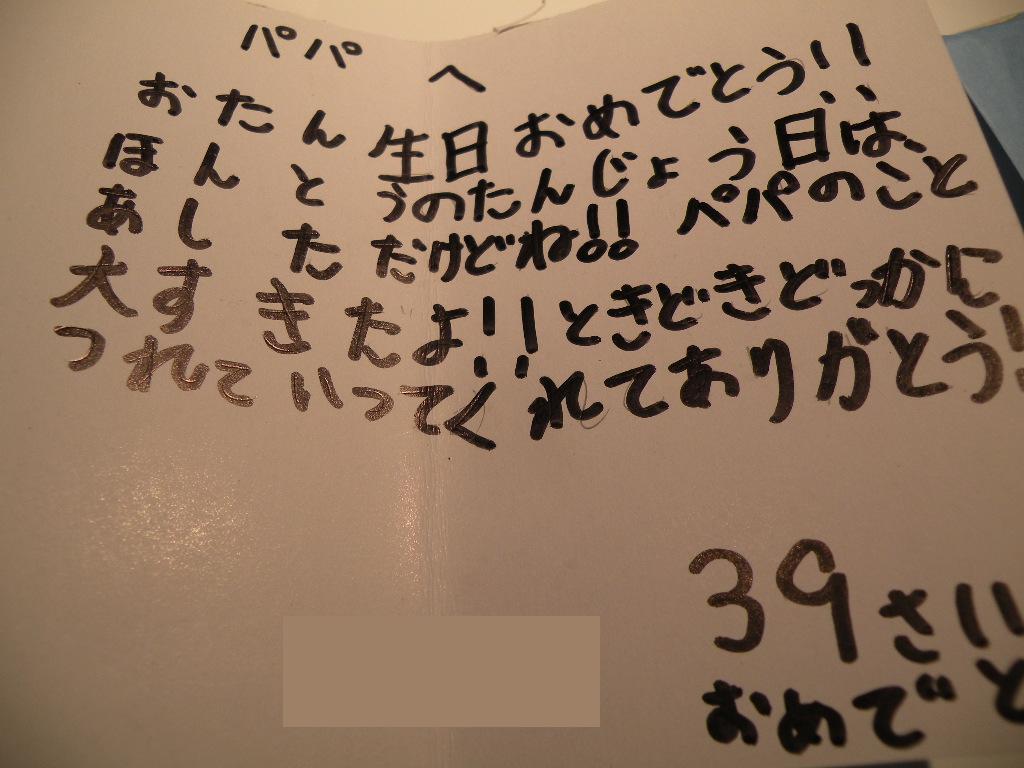 パパ へ
おたん生日おめでとう!!
ほんとうのたんじょう日は、
あしただけどね!! パパのこと
大すきたよ!!ときどきどっかに
つれていってくれてありがとう!
39さい!
おめでと